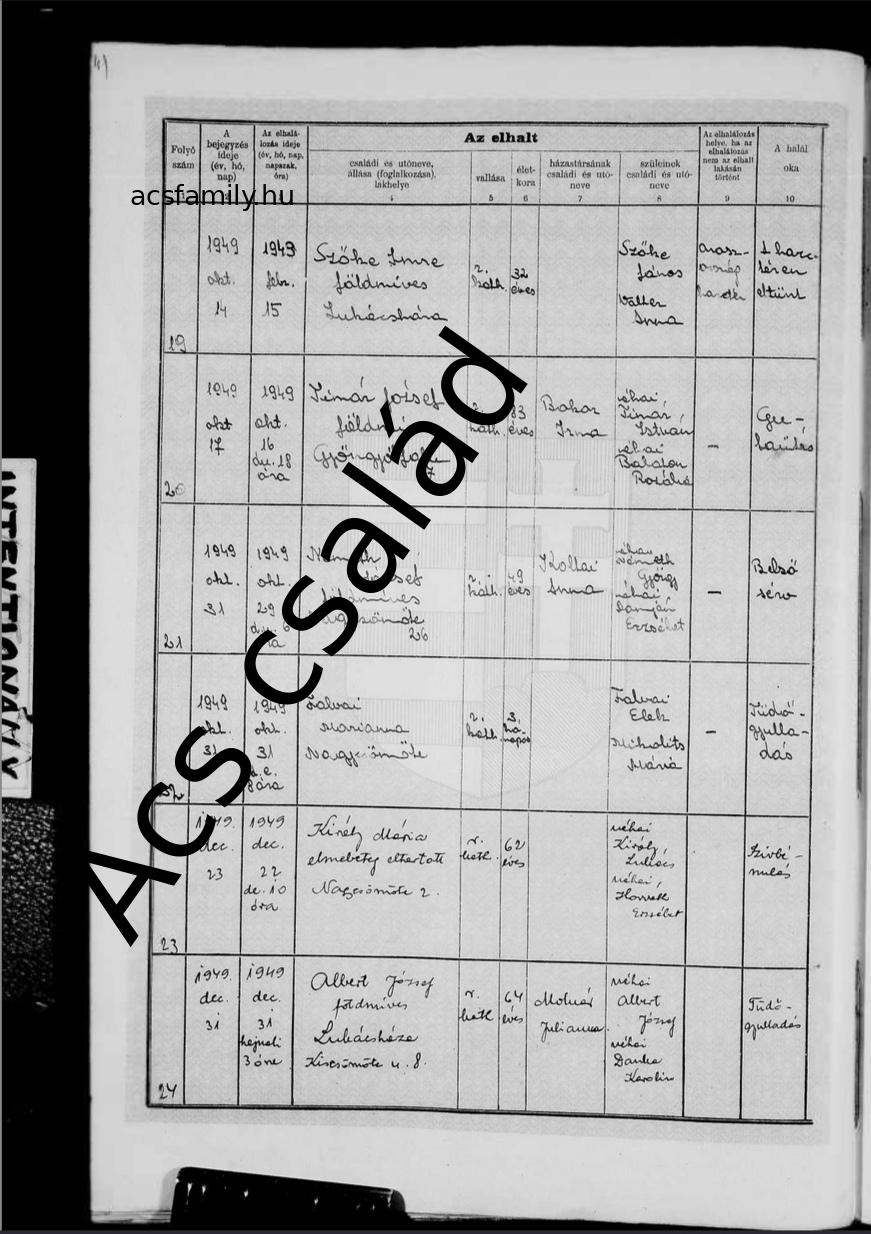 Folyó
szám
A
bejegyzés
ideje
(év, hó,
nap)
Az elhalá-
lozás ideje
(év, hó, nap,
napszak,
óra)
Az elhalt
családi és utóneve,
állása (foglalkozása),
lakhelye
vallása
élet-
kora
házastársának
családi és utó-
neve
szüleinek
családi és utó-
neve
Az elhalálozás
helye, ha az
elhalálozás
nem az elhalt
lakásán
történt
A halál
oka
4
5
6
7
8
9
10
acsfamily.hu
19
1949
okt.
14
1943
febr.
15
Szőke Imre
földmíves
Lukácsháza
r.
kath.
32
éves
Szőke
János
Valter
Anna
orosz-
ország
harctér
A harc-
téren
eltünt
20
1949
okt
17
1949
okt.
16
du. 18
óra
Timár József
Gyöngyösfalu
7
kath.
83
éves
Irma
néhai,
Timár
István
néhai
Balaton
Rozália
–
21
1949
okt.
31
1949
okt.
29
26
kath.
49
éves
Koltai
Anna
néhai
Németh
György
néhai
Erzsébet
–
Belső
1949
okt.
31
1949
okt.
31
8 óra
Marianna
Nagycsömöte
r.
kath.
3
hó-
napos
Elek
Mikolits
Mária
–
Tüdő-
gyulla-
dás
23
1949.
dec.
23
1949
dec.
22
de. 10
óra
Király Mária
elmebeteg eltartott
Nagycsömöte 2.
r.
kath.
62
éves
néhai
Király,
Lukács
néhai,
Horvath
Erzsébet
Szivbé-
nulás
24
1949.
dec.
31
1949
dec.
31
hajnali
3 óra
Albert József
földmíves
Lukácsháza
Kiscsömöte u. 8.
r.
kath.
64
éves
Molnár
Julianna
néhai
Albert
József
néhai
Danka
Karolin
Tüdő-
gyulladás
Ács család